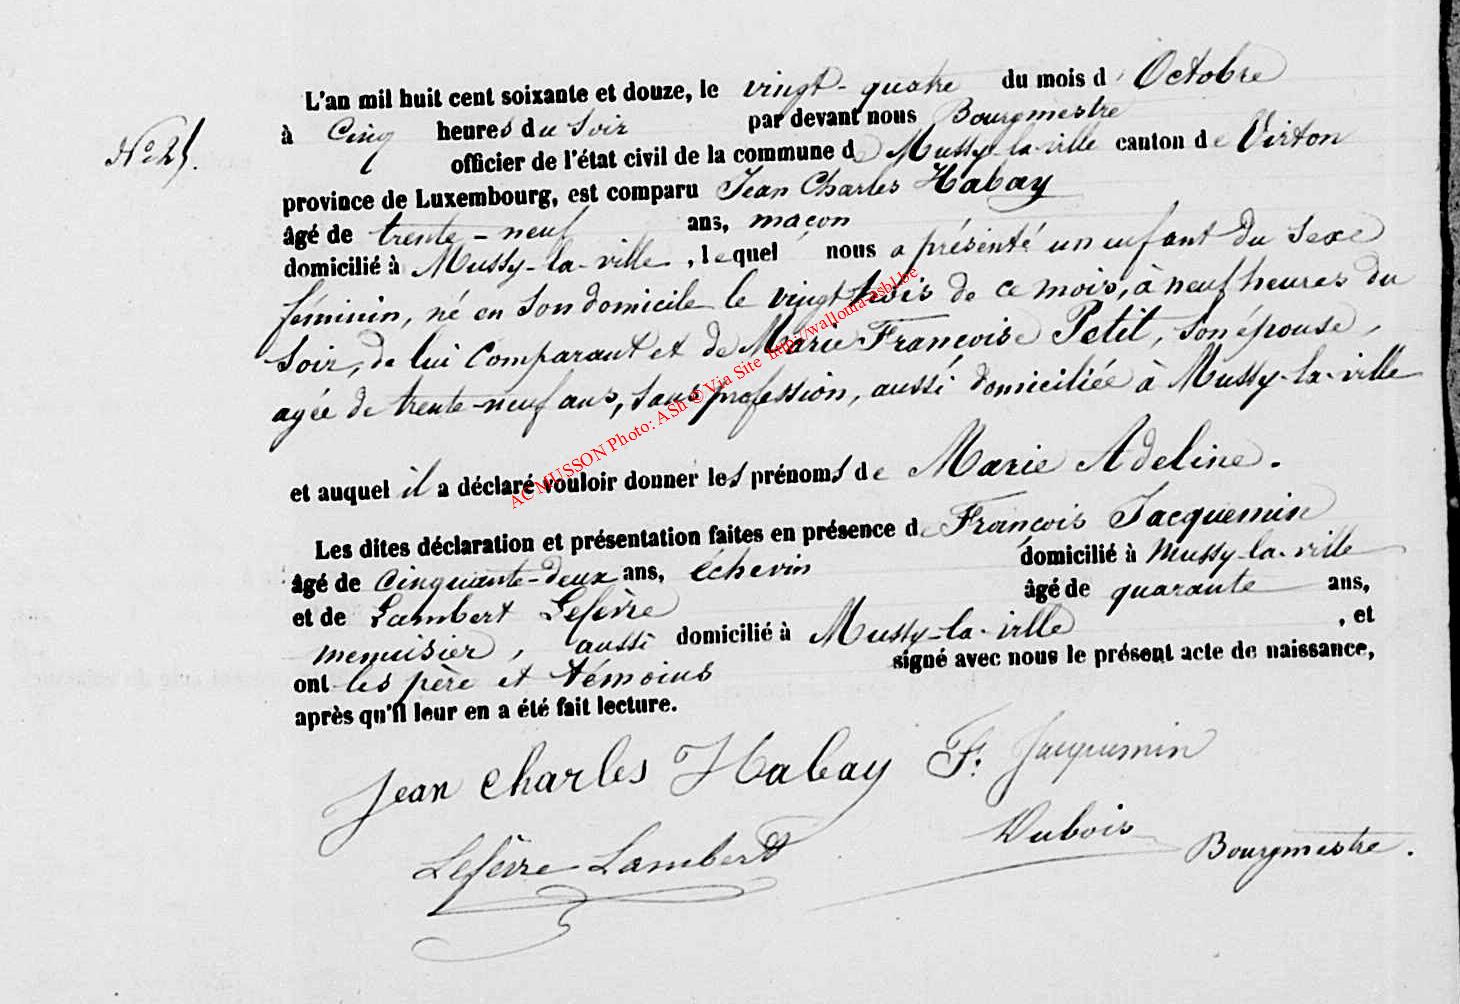 L'an mil huit cent soixante et douze, le vingt-quatre du mois d'Octobre
No 25.
à Cinq heures du soir par devant nous Bourgmestre
officier de l'état civil de la commune de Mussy-la-ville canton de Virton
province de Luxembourg, est comparu Jean Charles Habay
âgé de trente-neuf ans, maçon
domicilié à Mussy-la-ville, lequel nous a présenté un enfant du sexe
féminin, né en son domicile le vingt trois de ce mois, à neuf heures du
soir, de lui comparant et de Marie Françoise Petit, son épouse,
agée de trente-neuf ans, sans profession, aussi domiciliée à Mussy-la-ville
et auquel il a déclaré vouloir donner les prénoms de Marie Adeline.
Les dites déclaration et présentation faites en présence de François Jacquemin
âgé de cinquante-deux ans, échevin domicilié à Mussy-la-ville
et de Lambert Lefèvre âgé de quarante ans,
menuisier, aussi domicilié à Mussy-la-ville, et
ont les père et témoins signé avec nous le présent acte de naissance,
après qu'il leur en a été fait lecture.
Jean Charles Habay F. Jacquemin
Lefèvre Lambert Dubois Bourgmestre.
AC MUSSON Photo: ASh © Via Site http://wallonia-asbl.be